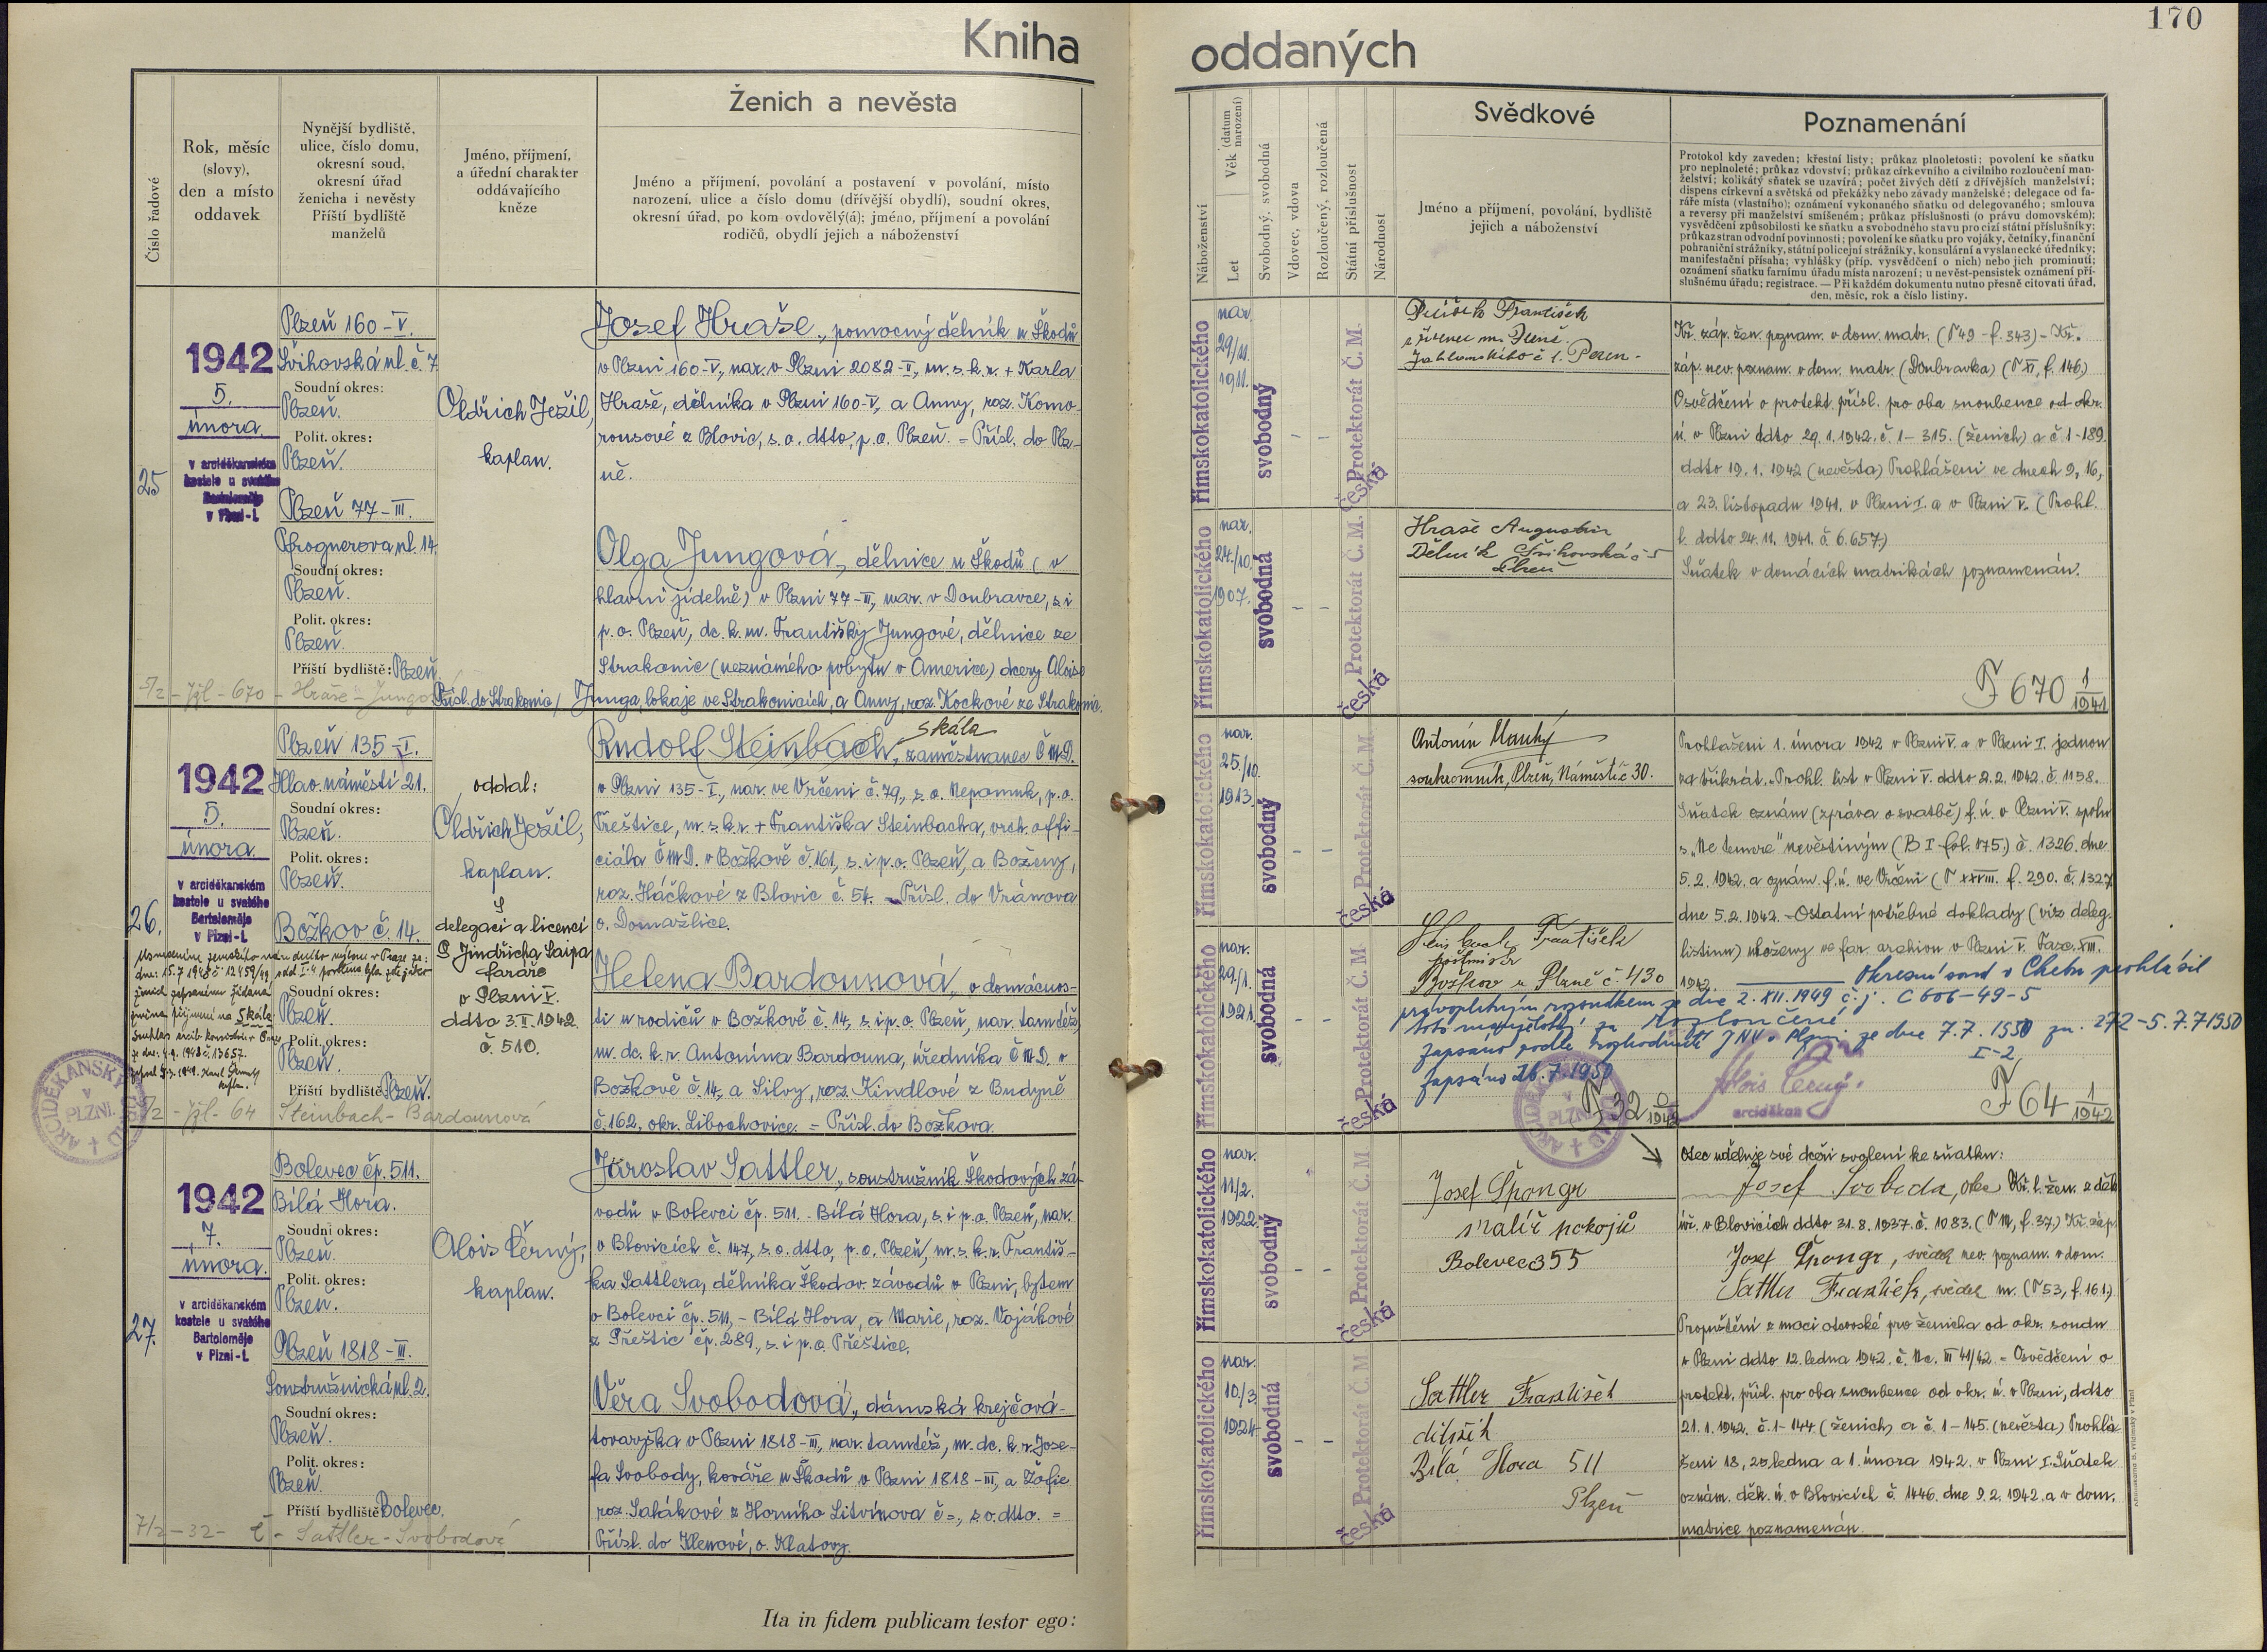 170
Kniha oddaných
Číslo řadové
Rok, měsíc
(slovy),
den a místo
oddavek
Nynější bydliště,
ulice, číslo domu,
okresní soud,
okresní úřad
ženicha i nevěsty
Příští bydliště
manželů
Jméno, příjmení,
a úřední charakter
oddávajícího
kněze
Ženich a nevěsta
Jméno a příjmení, povolání a postavení v povolání, místo
narození, ulice a číslo domu (dřívější obydlí), soudní okres,
okresní úřad, po kom ovdovělý(á); jméno, příjmení a povolání
rodičů, obydlí jejich a náboženství
Náboženství
Věk (datum narození)
Let
Svobodný, svobodná
Vdovec, vdova
Rozloučený, rozloučená
Státní příslušnost
Národnost
Svědkové
Jméno a příjmení, povolání, bydliště
jejich a náboženství
Poznamenání
Protokol kdy zaveden; křestní listy; průkaz plnoletosti; povolení ke sňatku
pro nepleté; průkaz vdovství; průkaz církevního a civilního rozloučení man-
želství; kolikátý sňatek se uzavírá; počet živých dětí z dřívějších manželství;
dispens církevní a světská od překážky nebo závady manželské; delegace od fa-
ráře místa (vlastního); oznámení vykonaného sňatku od delegovaného; smlouva
a reversy při manželství smíšeném; průkaz příslušnosti (o právu domovském);
vysvědčení způsobilosti ke sňatku a svobodného stavu pro cizí státní příslušníky;
průkaz stran odvodní povinnosti; povolení ke sňatku pro vojáky, četníky, finanční
pohraniční strážníky, státní policejní strážníky, konsulární a vyslanecké úředníky;
manifestační přísaha; vyhlášky (příp. vysvědčení o nich) nebo jich prominutí;
oznámení sňatku farnímu úřadu místa narození; u nevěst-pensistek oznámení pří-
slušnému úřadu; registrace. — Při každém dokumentu nutno přesně citovati úřad,
den, měsíc, rok a číslo listiny.
25
1942
5.
února.
v arciděkanském
kostele u svatého
Bartoloměje
v Plzni-I.
Plzeň 160-V.
Švihovská ul. č. 7
Soudní okres:
Plzeň.
Polit. okres:
Plzeň.
Plzeň 77-III.
Prognerova ul. 14.
Soudní okres:
Plzeň.
Polit. okres:
Plzeň.
Příští bydliště: Plzeň.
5/2 - Jžl - 670 - Hraše - Jungová
Oldřich Ježil,
kaplan.
Josef Hraše, pomocný dělník u Škodů
v Plzni 160-V., nar. v Plzni 2082-II., m. s. k. r. + Karla
Hraše, dělníka v Plzni 160-V., a Anny, roz. Komo-
rousové z Blovic, s. o. dtto, p. o. Plzeň. = Přísl. do Plz-
ně.
Olga Jungová, dělnice u Škodů (v
hlavní jídelně) v Plzni 77-III., nar. v Doubravce, s. i
p. o. Plzeň, dc. k. m. Františky Jungové, dělnice ze
Strakonic (neznámého pobytu v Americe) dcery Aloise
Přísl. do Strakonic / Junga, lokaje ve Strakonicích, a Anny, roz. Kockové ze Strakonic.
římskokatolického
nar.
29/11.
1911.
svobodný
- -
Protektorát Č. M.
česká
římskokatolického
nar.
24./10.
1907.
svobodná
- -
Protektorát Č. M.
česká
František
Plzeň
Hraše Augustin
Dělník Švihovská č 5
Plzeň
Kř. záp. žen. poznam. v dom. matr. (T 49 - f. 343) - Kř.
záp. nev. poznam. v dom. matr. (Doubravka) (T XI, f. 146.)
Osvědčení o protekt. přísl. pro oba snoubence od okr.
ú. v Plzni ddto 29. 1. 1942. č. 1-315. (ženich) a č. 1-189.
ddto 19. 1. 1942 (nevěsta) Prohlášení ve dnech 9, 16,
a 23. listopadu 1941. v Plzni I. a v Plzni V. (Prohl.
l. ddto 24. 11. 1941. č. 6.657.)
Sňatek v domácích matrikách poznamenán.
F 670 1/1941
26.
1942
5.
února.
v arciděkanském
kostele u svatého
Bartoloměje
v Plzni-I.
Plzeň 135-I.
Hlav. náměstí 21.
Soudní okres:
Plzeň.
Polit. okres:
Plzeň.
Božkov č. 14.
Soudní okres:
Plzeň.
Polit. okres:
Plzeň.
Příští bydliště: Plzeň.
5/2 - Jžl - 64 Steinbach - Bardounová
oddal:
Oldřich Ježil,
kaplan.
S
delegací a licencí
P. Jindřicha Saipa
faráře
v Plzni V.
ddto 3. II. 1942.
č. 510.
Skála
Rudolf Steinbach, zaměstnanec ČMD.
v Plzni 135-I., nar. ve Vrčeni č. 79, s. o. Nepomuk, p. o.
Přeštice, m. s. k. r. + Františka Steinbacha, vrch. offi-
ciála ČMD. v Božkově č. 161, s. i p. o. Plzeň, a Boženy,
roz. Háčkové z Blovic č. 54. = Přísl. do Vránova
o. Domažlice.
Helena Bardounová, v domácnos-
ti u rodičů v Božkově č. 14, s. i p. o. Plzeň, nar. tamtéž,
m. dc. k. r. Antonína Bardouna, úředníka ČMD. v
Božkově č. 14, a Silvy, roz. Kindlové z Budyně
č. 162, okr. Libochovice. = Přísl. do Božkova.
římskokatolického
nar.
25/10.
1913.
svobodný
- -
Protektorát Č. M.
česká
římskokatolického
nar.
29/1.
1921.
svobodná
- -
Protektorát Č. M
česká
Antonín
soukromník, Plzeň, Náměstí č 30.
František
Božkov u Plzně č. 430
Prohlášení 1. února 1942 v Plzni V. a v Plzni I. jednou
za třikrát. Prohl. list v Plzni V. ddto 2. 2. 1942. č. 1158.
Sňatek oznám. (zpráva o svatbě) f. ú. v Plzni V. spolu
s „Ne temere" nevěstiným (B I fol. 175.) č. 1326. dne
5. 2. 1942. a oznám. f. ú. ve Vrčeni (T XXVIII. f. 290. č. 1327
dne 5. 2. 1942. - Ostatní potřebné doklady (viz deleg.
listinu) uloženy ve far. archivu v Plzni V. Fasc. XIII.
1942.
Okresní soud v Chebu prohlásil
pravoplatným rozsudkem ze dne 2. XII. 1949 č. j. C 606-49-5
toto manželství za rozloučené.
Zapsáno podle rozhodnutí JNV v Plzni ze dne 7. 7. 1950 zn. 272-5. 7. 7 1950
I-2
Zapsáno 26. 7. 1950
Alois Černý
arciděkan
F 32 0/1942
F 64 1/1942
27.
1942
7.
února.
v arciděkanském
kostele u svatého
Bartoloměje
v Plzni-I.
Bolevec čp. 511.
Bílá Hora.
Soudní okres:
Plzeň.
Polit. okres:
Plzeň.
Plzeň 1818-III.
Soustružnická ul. 2.
Soudní okres:
Plzeň.
Polit. okres:
Plzeň.
Příští bydliště: Bolevec.
7/2 - 32 - Č - Sattler - Svobodová
Alois Černý,
kaplan.
Jaroslav Sattler, soustružník Škodových zá-
vodů v Bolevci čp. 511. - Bílá Hora, s. i p. o. Plzeň, nar.
v Blovicích č. 147, s. o. dtto, p. o. Plzeň, m. s. k. r. Františ-
ka Sattlera, dělníka Škodov. závodů v Plzni, bytem
v Bolevci čp. 511, - Bílá Hora, a Marie, roz. Vojákové
z Přeštic čp. 289, s. i p. o. Přeštice.
Věra Svobodová, dámská krejčová-
tovaryška v Plzni 1818-III., nar. tamtéž, m. dc. k. r. Jose-
fa Svobody, kováře u Škodů v Plzni 1818-III, a Žofie
roz. Sahákové z Horního Litvínova č =, s. o. dtto. =
Přísl. do Klenové, o. Klatovy.
římskokatolického
nar.
11/2.
1922.
svobodný
- -
Protektorát Č. M
česká
římskokatolického
nar.
10./3.
1924.
svobodná
- -
Protektorát Č. M
česká
Josef Špongr
malíř pokojů
Bolevec 355
Sattler František
dělník
Bílá Hora 511
Plzeň
Otec uděluje své dceři svolení ke sňatku:
Josef Svoboda, otec Kř. l. žen. z děk.
úř. v Blovicích ddto 31. 8. 1937. č. 1083. (T M, f. 37.) Kř. záp.
Josef Špongr, svědek nev. poznam. v dom.
Sattler František, svědek m. (T 53, f. 161.)
Propuštění z moci otcovské pro ženicha od okr. soudu
v Plzni ddto 12. ledna 1942. č. Nc. III 41/42. - Osvědčení o
protekt. přísl. pro oba snoubence od okr. ú. v Plzni, ddto
21. 1. 1942. č. 1-144 (ženich) a č. 1-145. (nevěsta) Prohlá-
šení 18, 25 ledna a 1. února 1942. v Plzni I. Sňatek
oznám. děk. ú. v Blovicích č. 1446. dne 9. 2. 1942. a v dom.
matrice poznamenán.
Ita in fidem publicam testor ego: